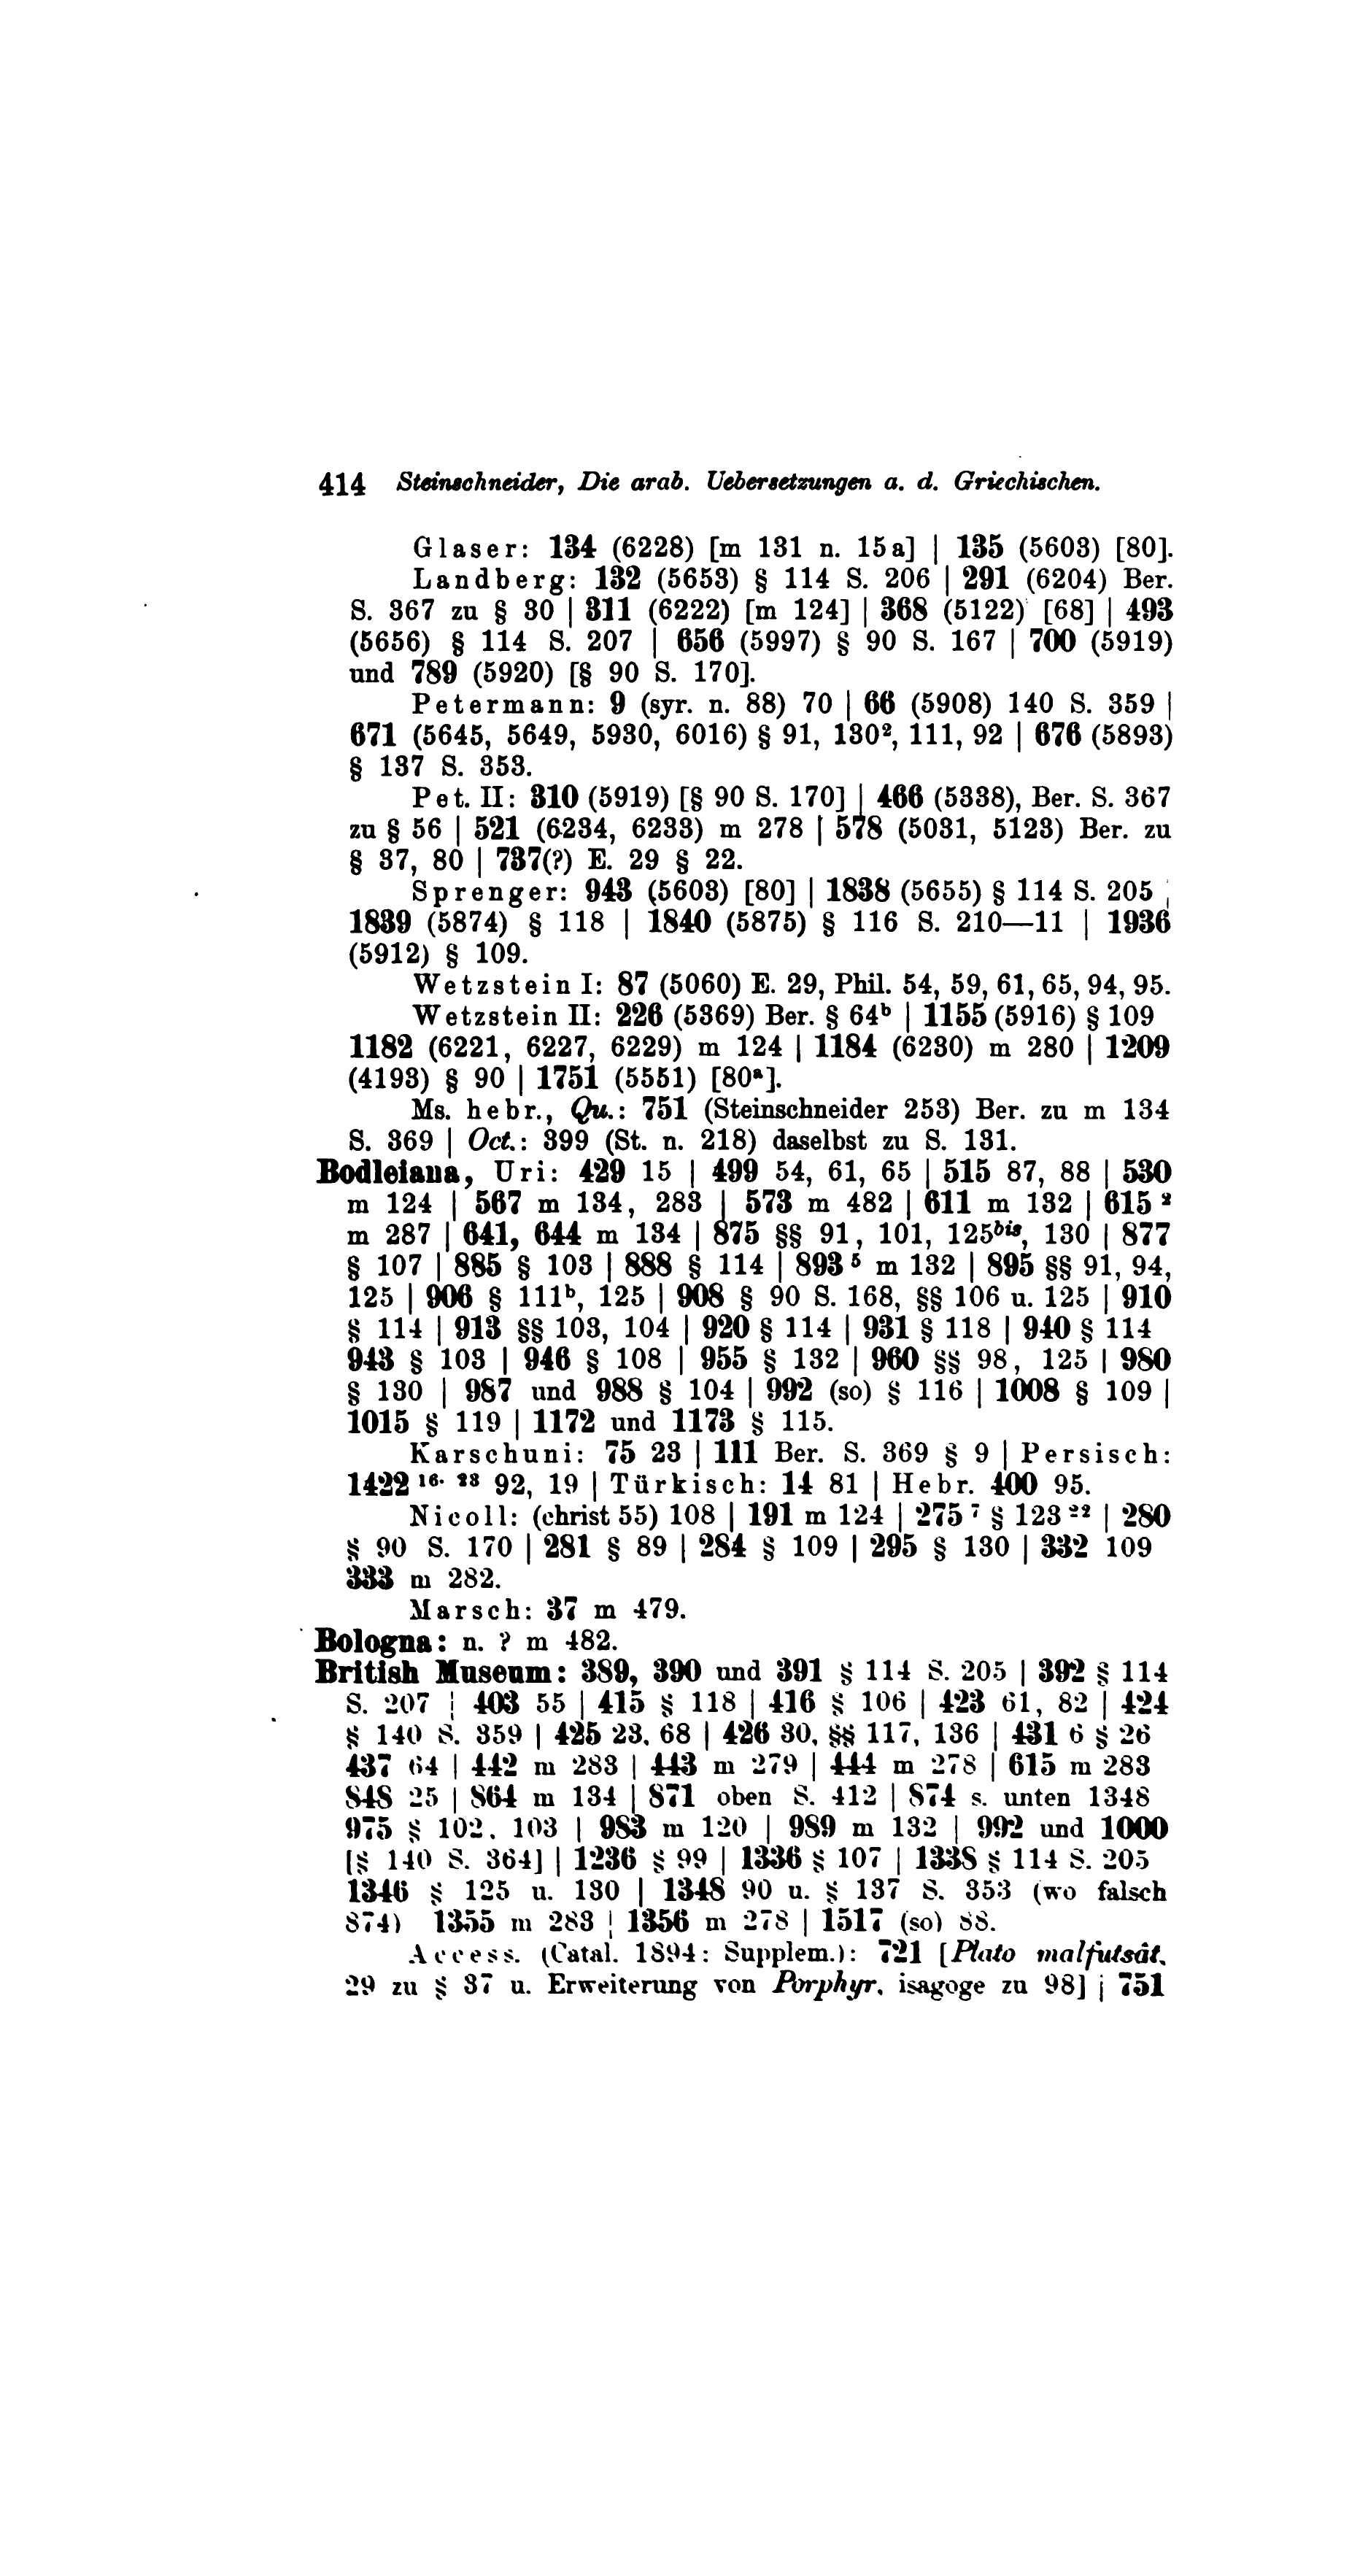 414 Steinschneider, Die arab. Uebersetzungen a. d. Griechischen.
Glaser: 134 (6228) [m 131 n. 15a] | 135 (5603) [80].
Landberg: 132 (5653) § 114 S. 206 | 291 (6204) Ber.
S. 367 zu § 30 | 311 (6222) [m 124] | 368 (5122) [68] | 493
(5656) § 114 S. 207 | 656 (5997) § 90 S. 167 | 700 (5919)
und 789 (5920) [§ 90 S. 170].
Petermann: 9 (syr. n. 88) 70 | 66 (5908) 140 S. 359 |
671 (5645, 5649, 5930, 6016) § 91, 130², 111, 92 | 676 (5893)
§ 137 S. 353.
Pet. II: 310 (5919) [§ 90 S. 170] | 466 (5338), Ber. S. 367
zu § 56 | 521 (6234, 6233) m 278 | 578 (5031, 5123) Ber. zu
§ 37, 80 | 737(?) E. 29 § 22.
Sprenger: 943 (5603) [80] | 1838 (5655) § 114 S. 205 |
1839 (5874) § 118 | 1840 (5875) § 116 S. 210—11 | 1936
(5912) § 109.
Wetzstein I: 87 (5060) E. 29, Phil. 54, 59, 61, 65, 94, 95.
Wetzstein II: 226 (5369) Ber. § 64ᵇ | 1155 (5916) § 109
1182 (6221, 6227, 6229) m 124 | 1184 (6230) m 280 | 1209
(4193) § 90 | 1751 (5551) [80ᵃ].
Ms. hebr., Qu.: 751 (Steinschneider 253) Ber. zu m 134
S. 369 | Oct.: 399 (St. n. 218) daselbst zu S. 131.
Bodleiana, Uri: 429 15 | 499 54, 61, 65 | 515 87, 88 | 530
m 124 | 567 m 134, 283 | 573 m 482 | 611 m 132 | 615 ²
m 287 | 641, 644 m 134 | 875 §§ 91, 101, 125bis, 130 | 877
§ 107 | 885 § 103 | 888 § 114 | 893 ⁵ m 132 | 895 §§ 91, 94,
125 | 906 § 111ᵇ, 125 | 908 § 90 S. 168, §§ 106 u. 125 | 910
§ 114 | 913 §§ 103, 104 | 920 § 114 | 931 § 118 | 940 § 114
943 § 103 | 946 § 108 | 955 § 132 | 960 §§ 98, 125 | 980
§ 130 | 987 und 988 § 104 | 992 (so) § 116 | 1008 § 109 |
1015 § 119 | 1172 und 1173 § 115.
Karschuni: 75 23 | 111 Ber. S. 369 § 9 | Persisch:
1422 ¹⁶· ²³ 92, 19 | Türkisch: 14 81 | Hebr. 400 95.
Nicoll: (christ 55) 108 | 191 m 124 | 275 ⁷ § 123 ²² | 280
§ 90 S. 170 | 281 § 89 | 284 § 109 | 295 § 130 | 332 109
333 m 282.
Marsch: 37 m 479.
Bologna: n. ? m 482.
British Museum: 389, 390 und 391 § 114 S. 205 | 392 § 114
S. 207 | 403 55 | 415 § 118 | 416 § 106 | 423 61, 82 | 424
§ 140 S. 359 | 425 23, 68 | 426 30, §§ 117, 136 | 431 6 § 26
437 64 | 442 m 283 | 443 m 279 | 444 m 278 | 615 m 283
848 25 | 864 m 134 | 871 oben S. 412 | 874 s. unten 1348
975 § 102, 103 | 983 m 120 | 989 m 132 | 992 und 1000
[§ 140 S. 364] | 1236 § 99 | 1336 § 107 | 1338 § 114 S. 205
1346 § 125 u. 130 | 1348 90 u. § 137 S. 353 (wo falsch
874) 1355 m 283 | 1356 m 278 | 1517 (so) 88.
Access. (Catal. 1894: Supplem.): 721 [Plato malfutsât,
29 zu § 37 u. Erweiterung von Porphyr. isagoge zu 98] | 751